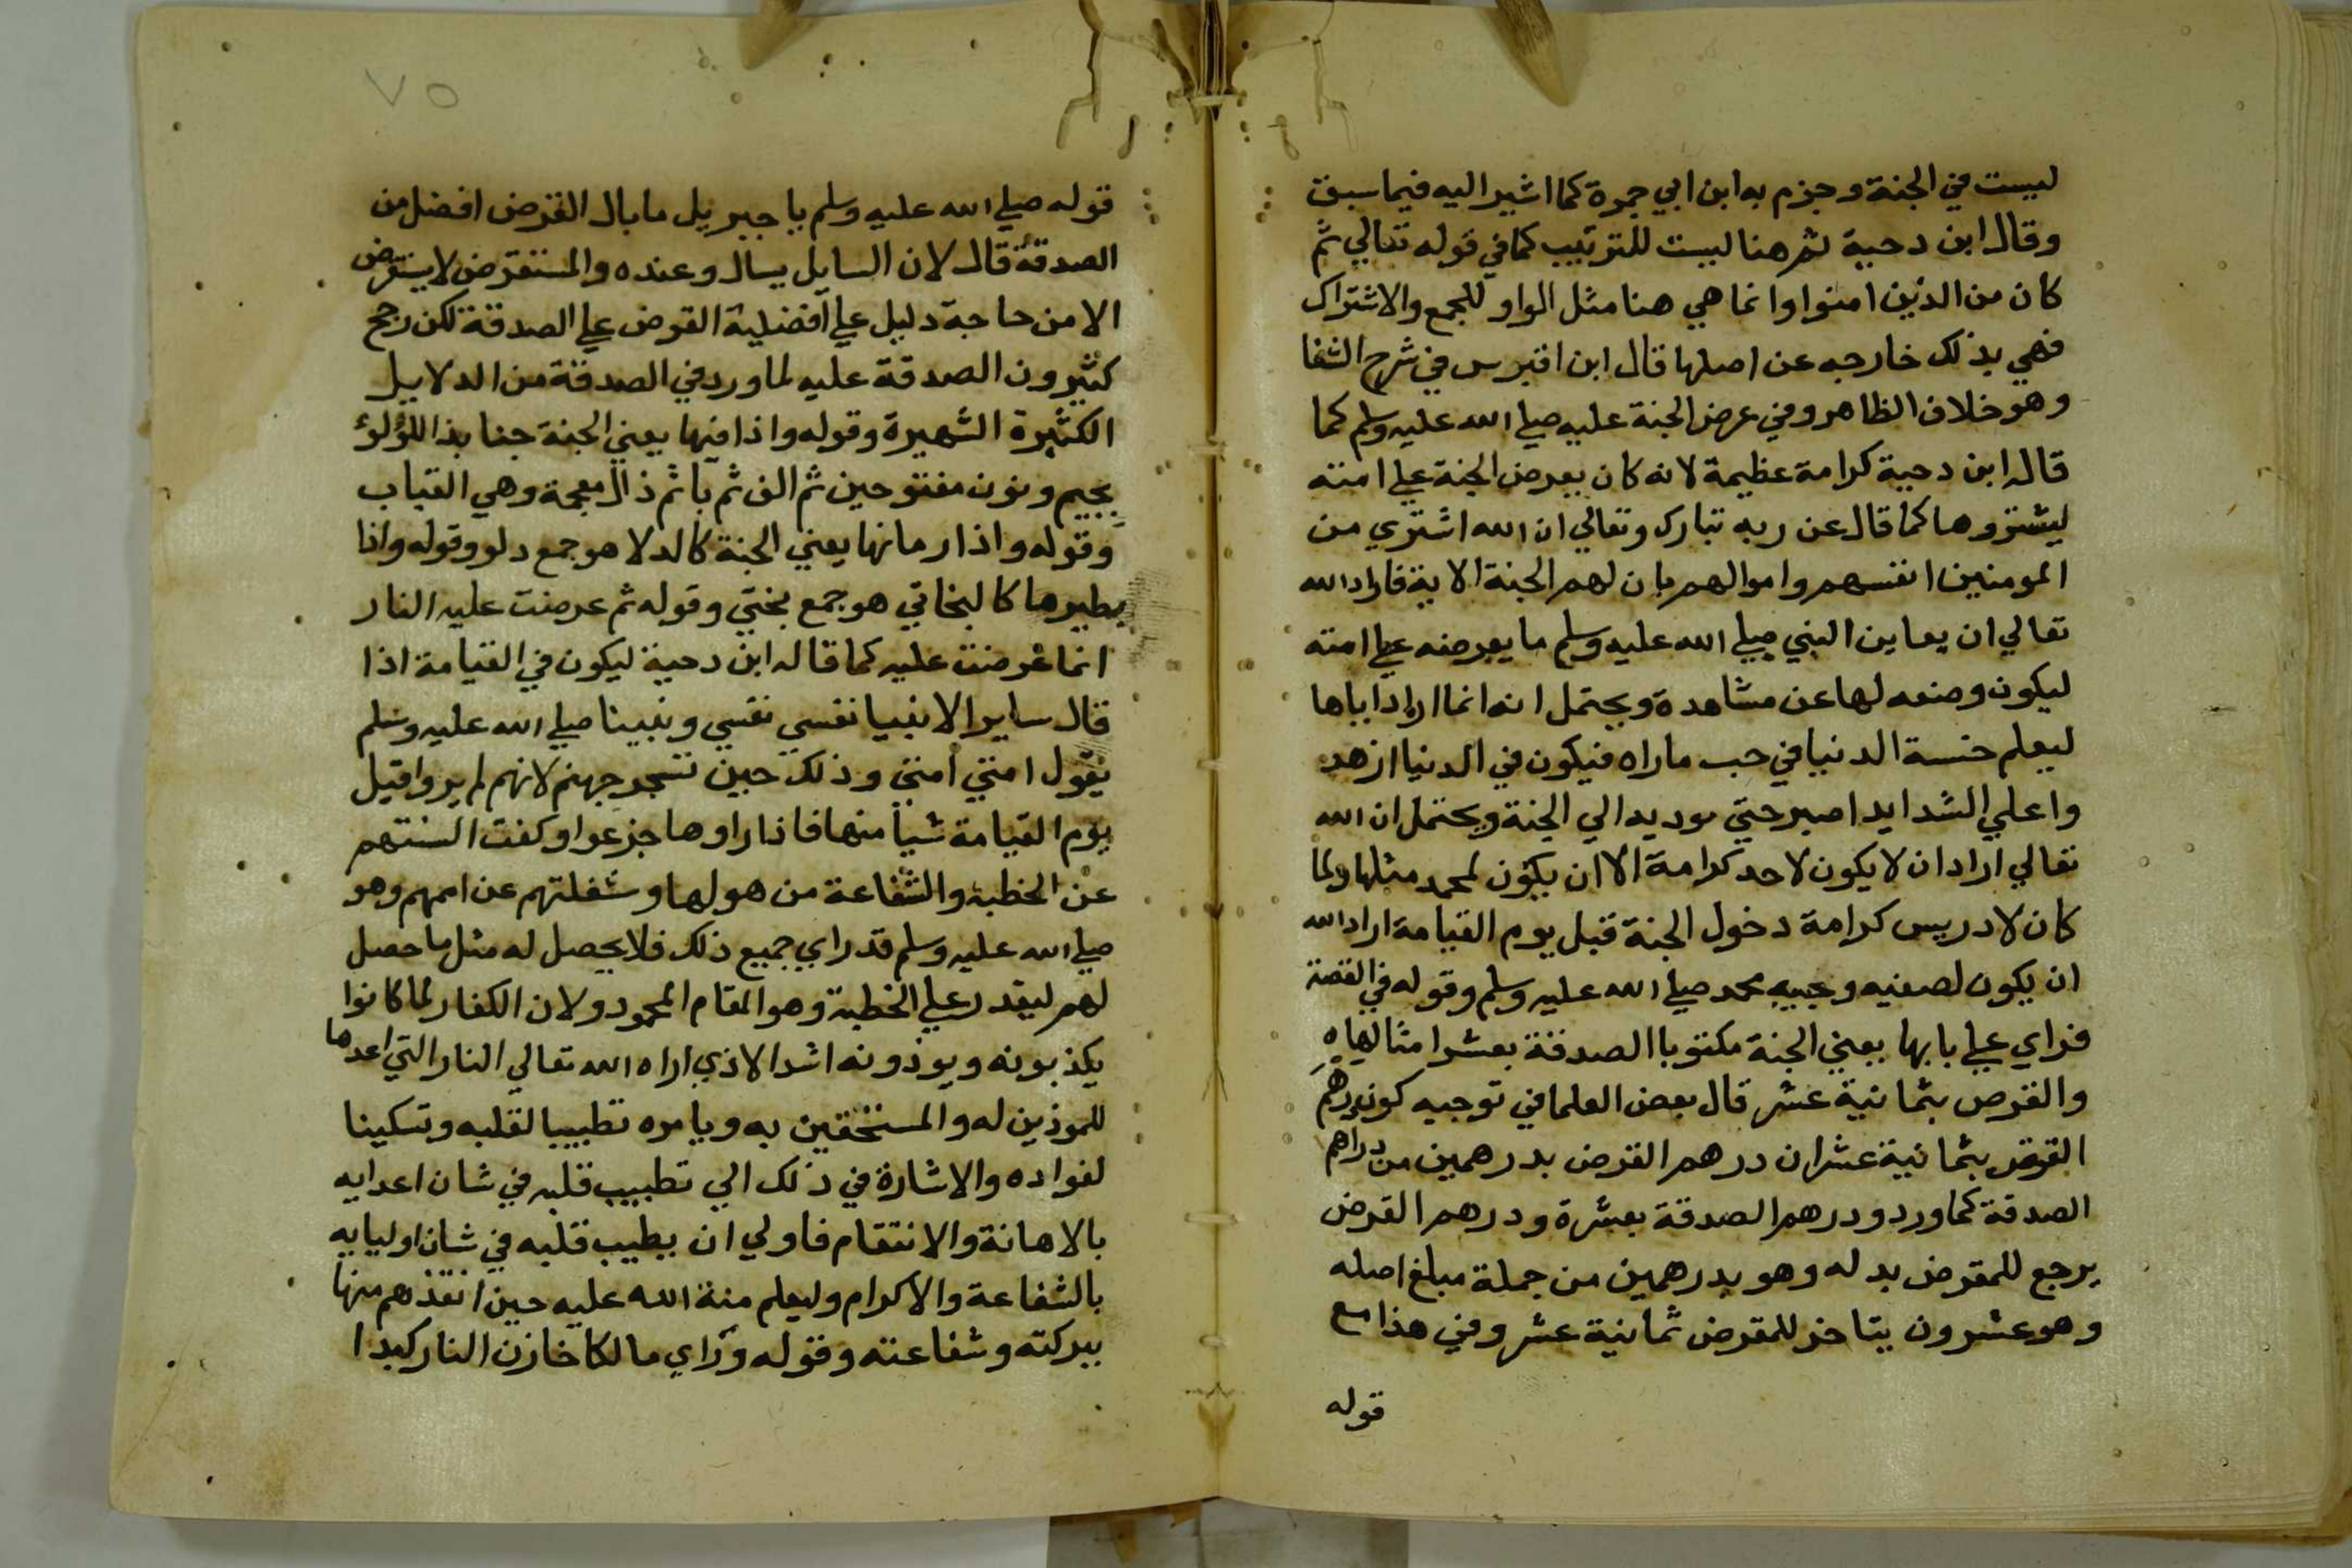 ليست في الجنة وجزم به ابن ابي جمرة كما اشير اليه فيما سبق
وقال ابن دحية ثم هنا ليست للترتيب كما في قوله تعالي ثم
كان من الذين امنوا وانما هي هنا مثل الواو للجمع والاشتراك
فهي بذلك خارجه عن اصلها قال ابن اقبرس في شرح الشفا
وهو خلاف الظاهر وفي عرض الجنة عليه صلي الله عليه وسلم كما
قاله ابن دحية كرامة عظيمة لانه كان يعرض الجنة علي امته
ليشتروها كما قال عن ربه تبارك وتعالي ان الله اشتري من
المومنين انفسهم واموالهم بان لهم الجنة الاية فاراد الله
تعالي ان يعاين النبي صلي الله عليه وسلم ما يعرضه علي امته
ليكون وصفه لها عن مشاهدة ويحتمل انه انما اراد اياها
ليعلم خسة الدنيا في جنب ماراه فيكون في الدنيا ازهد
واعلي الشدايد اصبر حتي يوديه الي الجنة ويحتمل ان الله
تعالي اراد ان لا يكون لاحد كرامة الا ان يكون لمحمد مثلها ولما
كان لادريس كرامة دخول الجنة قبل يوم القيامة اراد الله
ان يكون لصفيه وحبيبه محمد صلي الله عليه وسلم وقوله في القصة
فراي علي بابها يعني الجنة مكتوبا الصدقة بعشر امثالها
والقرض بثمانية عشر قال بعض العلما في توجيه كون درهم
القرض بثمانية عشر ان درهم القرض بدرهمين من دراهم
الصدقة كما ورد ودرهم الصدقة بعشرة ودرهم القرض
يرجع للمقرض بدله وهو بدرهمين من جملة مبلغ اصله
وهو عشرون يتاخر للمقرض ثمانية عشر وفي هذا مع
قوله
٧٥
قوله صلي الله عليه وسلم يا جبريل ما بال القرض افضل من
الصدقة قال لان السايل يسال وعنده والمستقرض لا يستقرض
الا من حاجة دليل علي افضلية القرض علي الصدقة لكن رجح
كثيرون الصدقة عليه لما ورد في الصدقة من الدلايل
الكثيرة الشهيرة وقوله واذا فيها يعني الجنة جنابذ اللؤلؤ
بجيم ونون مفتوحين ثم الف ثم با ثم ذال معجمة وهي القباب
وقوله واذا رمانها يعني الجنة كالدلا هو جمع دلو وقوله واذا
بطيرها كالبخاتي هو جمع بختي وقوله ثم عرضت عليه النار
انما عرضت عليه كما قاله ابن دحية ليكون في القيامة اذا
قال ساير الانبيا نفسي نفسي ونبينا صلي الله عليه وسلم
يقول امتي امتي وذلك حين تسجر جهنم لانهم لم يروا قبل
يوم القيامة شيأ منها فاذا راوها جزعوا وكفت السنتهم
عن الخطبة والشفاعة من هولها وشغلتهم عن اممهم وهو
صلي الله عليه وسلم قد راي جميع ذلك فلا يحصل له مثل ما حصل
لهم ليقدر علي الخطبة وهو المقام المحمود ولان الكفار لما كانوا
يكذبونه ويوذونه اشد الاذي اراه الله تعالي النار التي اعدها
للموذين له والمستخفين به وبامره تطييبا لقلبه وتسكينا
لفواده والاشارة في ذلك الي تطييب قلبه في شان اعدايه
بالاهانة والانتقام فاولي ان يطيب قلبه في شان اوليايه
بالشفاعة والاكرام وليعلم منة الله عليه حين انقذهم منها
ببركته وشفاعته وقوله وراي مالكا خازن النار كبدا